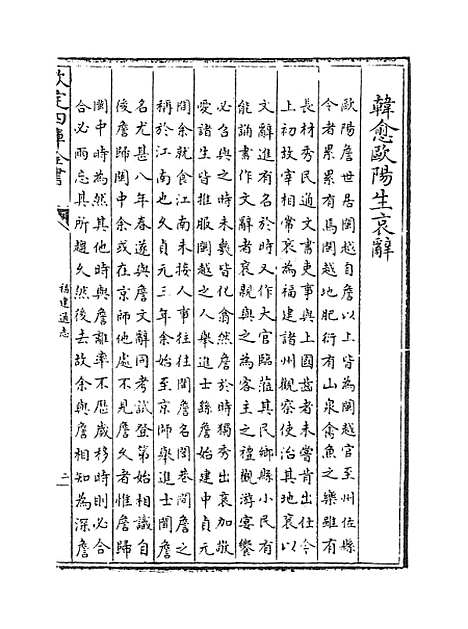 韓愈歐陽生哀辭
歐陽詹世居閩越自詹以上皆為閩越官至州佐縣
令者累累有焉閩越地肥衍有山泉禽魚之樂雖有
長材秀民通文書吏事與上國齒者未嘗肯出仕今
上初故宰相常衮為福建諸州觀察使治其地衮以
文辭進有名於時又作大官臨蒞其民鄉縣小民有
能誦書作文辭者衮親與之為客主之禮觀游宴饗
必召與之時未幾皆化翕然詹於時獨秀出衮加敬
愛諸生皆推服閩越之人舉進士繇詹始建中貞元
間余就食江南未接人事往往聞詹名閭巷間詹之
稱於江南也久貞元三年余始至京師舉進士聞詹
名尤甚八年春遂與詹文辭同考試登第始相識自
後詹歸閩中余或在京師他處不見詹久者惟詹歸
閩中時為然其他時與詹離率不歷歲移時則必合
合必兩忘其所趨久然後去故余與詹相知為深詹
欽定四庫全書
福建通志
二